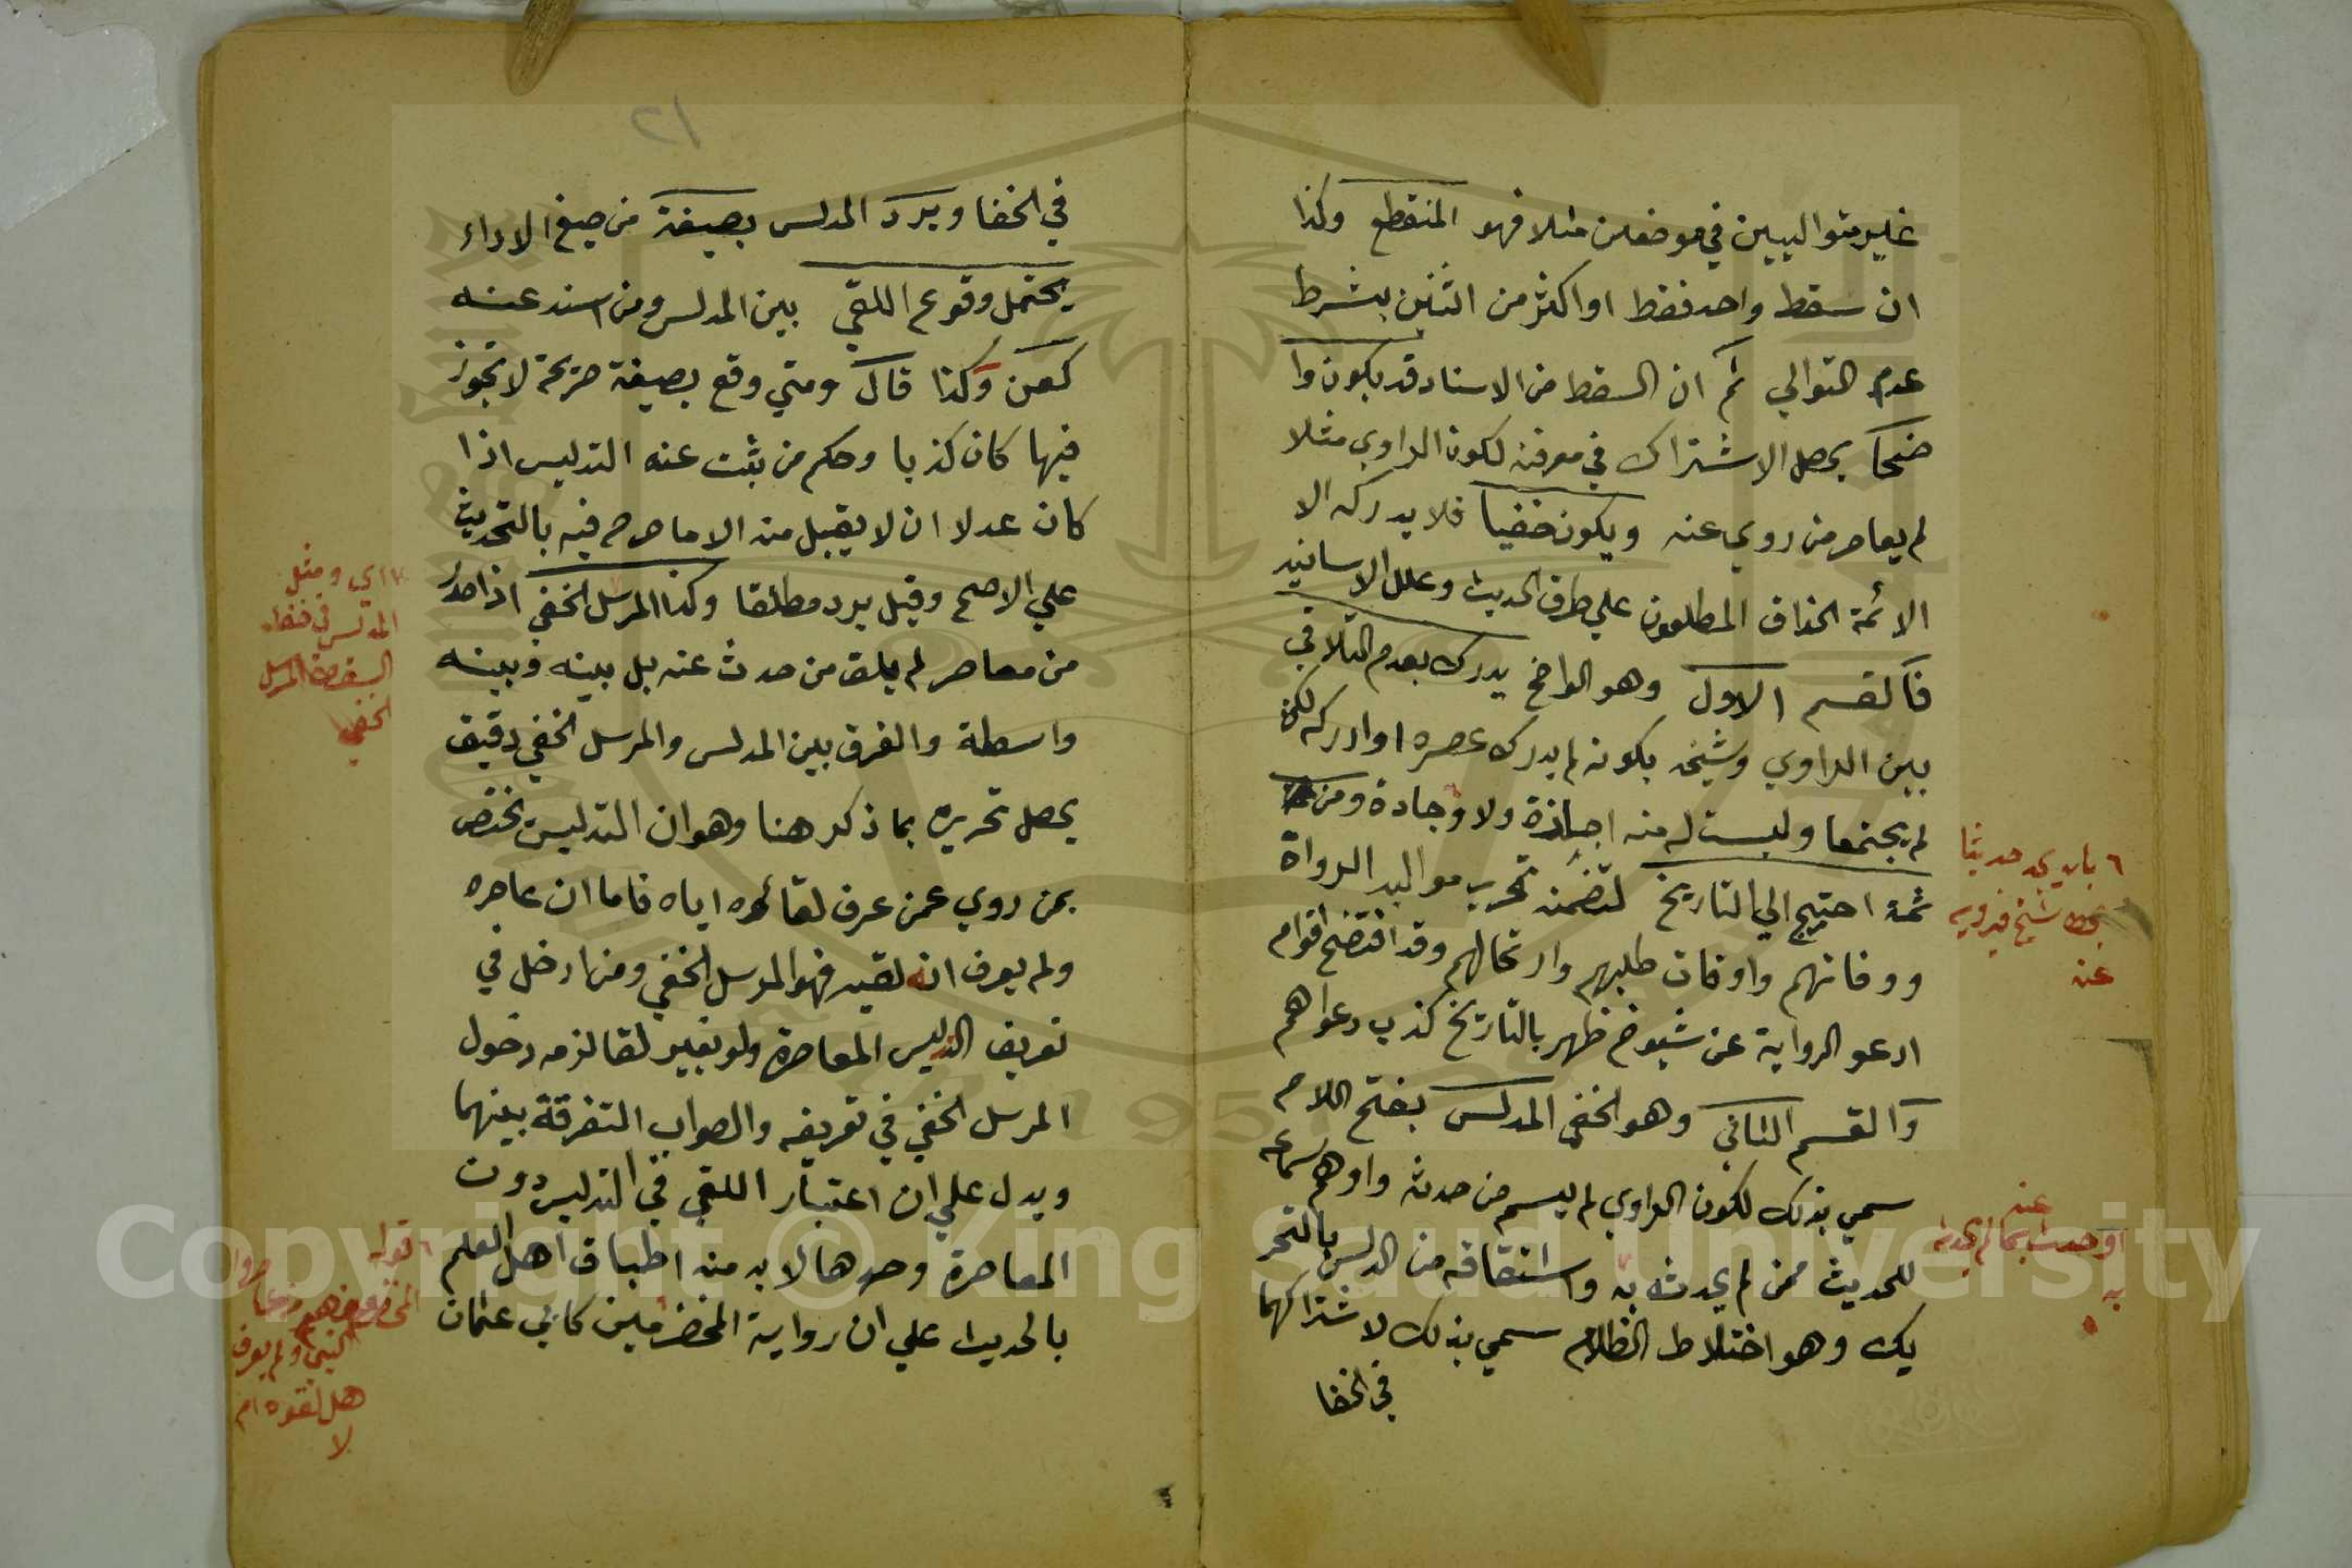 غير متواليين في موضعين مثلا فهو المنقطع وكذا
ان سقط واحد فقط او اكثر من اثنين بشرط
عدم التوالي ثم ان السقط من الاسناد قد يكون وا
ضحا يحصل الاشتراك في معرفته لكون الراوي مثلا
لم يعاصر من روي عنه ويكون خفيا فلا يدركه الا
الائمة الحذاق المطلعون علي طرق الحديث وعلل الاسانيد
فالقسم الاول وهو الواضح يدرك بعدم التلاقي
بين الراوي وشيخه بكونه لم يدرك عصره او ادركه لكن
لم يجتمعا وليست له منه اجازة ولا وجادة ومن
ثمة احتيج الي التاريخ لتضمنه تحرير مواليد الرواة
ووفاتهم واوقات طلبهم وارتحالهم وقد افتضح اقوام
ادعو الرواية عن شيوخ ظهر بالتاريخ كذب دعواهم
والقسم الثاني وهو الخفي المدلس بفتح اللام
سمي بذلك لكون الراوي لم يسم من حدثه واوهم سماعه
للحديث ممن لم يحدثه به واشتقاقه من الدلس بالتحر
يك وهو اختلاط الظلام سمي بذلك لاشتراكهما
في الخفا
٦ بان يجد حديثا
شيخ فيرويه
عنه
عنه
او حدث بما لم يحدثه
به
١٢
في الخفا ويرد المدلس بصيغة من صيغ الاداء
يحتمل وقوع اللقي بين المدلس ومن اسند عنه
كعن وكذا قال ومتي وقع بصيغة صريحة لا تجوز
فيها كان كذبا وحكم من ثبت عنه التدليس اذا
كان عدلا ان لا يقبل منه الا ما صرح فيه بالتحديث
علي الاصح وقيل يرد مطلقا وكذا المرسل الخفي اذا صدر
من معاصر لم يلق من حدث عنه بل بينه وبينه
واسطة والفرق بين المدلس والمرسل الخفي دقيق
يحصل تحريره بما ذكر هنا وهو ان التدليس يختص
بمن روي عمن عرف لقائه اياه فاما ان عاصره
ولم يعرف انه لقيه فهو المرسل الخفي ومن ادخل في
تعريف التدليس المعاصرة ولو بغير لقا لزمه دخول
المرسل الخفي في تعريفه والصواب التفرقة بينهما
ويدل علي ان اعتبار اللقي في التدليس دون
المعاصرة وحدها لا بد منه اطباق اهل العلم
بالحديث علي ان رواية المخضرمين كابي عثمان
اي ومثل
المدلس في خفاء
السقط المرسل
الخفي
٦ قوله
المخضرمين هم من عاصروا
النبي ولم يعرف
هل لقوه ام
لا
Copyright © King Saud University
1957